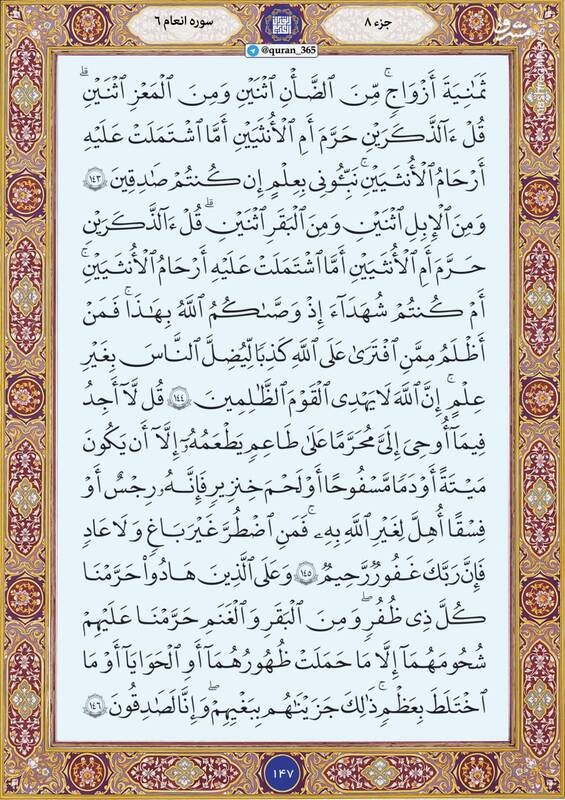 جزء ۸
سوره انعام ۶
@quran_365
مشرق
ثَمَٰنِيَةَ أَزْوَٰجٍ ۖ مِّنَ ٱلضَّأْنِ ٱثْنَيْنِ وَمِنَ ٱلْمَعْزِ ٱثْنَيْنِ ۗ
قُلْ ءَآلذَّكَرَيْنِ حَرَّمَ أَمِ ٱلْأُنثَيَيْنِ أَمَّا ٱشْتَمَلَتْ عَلَيْهِ
أَرْحَامُ ٱلْأُنثَيَيْنِ ۖ نَبِّـُٔونِى بِعِلْمٍ إِن كُنتُمْ صَٰدِقِينَ ١٤٣
وَمِنَ ٱلْإِبِلِ ٱثْنَيْنِ وَمِنَ ٱلْبَقَرِ ٱثْنَيْنِ ۗ قُلْ ءَآلذَّكَرَيْنِ
حَرَّمَ أَمِ ٱلْأُنثَيَيْنِ أَمَّا ٱشْتَمَلَتْ عَلَيْهِ أَرْحَامُ ٱلْأُنثَيَيْنِ ۖ
أَمْ كُنتُمْ شُهَدَآءَ إِذْ وَصَّىٰكُمُ ٱللَّهُ بِهَٰذَا ۚ فَمَنْ
أَظْلَمُ مِمَّنِ ٱفْتَرَىٰ عَلَى ٱللَّهِ كَذِبًا لِّيُضِلَّ ٱلنَّاسَ بِغَيْرِ
عِلْمٍ ۗ إِنَّ ٱللَّهَ لَا يَهْدِى ٱلْقَوْمَ ٱلظَّٰلِمِينَ ١٤٤ قُل لَّآ أَجِدُ
فِى مَآ أُوحِىَ إِلَىَّ مُحَرَّمًا عَلَىٰ طَاعِمٍ يَطْعَمُهُۥٓ إِلَّآ أَن يَكُونَ
مَيْتَةً أَوْ دَمًا مَّسْفُوحًا أَوْ لَحْمَ خِنزِيرٍ فَإِنَّهُۥ رِجْسٌ أَوْ
فِسْقًا أُهِلَّ لِغَيْرِ ٱللَّهِ بِهِۦ ۚ فَمَنِ ٱضْطُرَّ غَيْرَ بَاغٍ وَلَا عَادٍ
فَإِنَّ رَبَّكَ غَفُورٌ رَّحِيمٌ ١٤٥ وَعَلَى ٱلَّذِينَ هَادُوا۟ حَرَّمْنَا
كُلَّ ذِى ظُفُرٍ ۖ وَمِنَ ٱلْبَقَرِ وَٱلْغَنَمِ حَرَّمْنَا عَلَيْهِمْ
شُحُومَهُمَآ إِلَّا مَا حَمَلَتْ ظُهُورُهُمَآ أَوِ ٱلْحَوَايَآ أَوْ مَا
ٱخْتَلَطَ بِعَظْمٍ ۚ ذَٰلِكَ جَزَيْنَٰهُم بِبَغْيِهِمْ ۖ وَإِنَّا لَصَٰدِقُونَ ١٤٦
۱۴۷